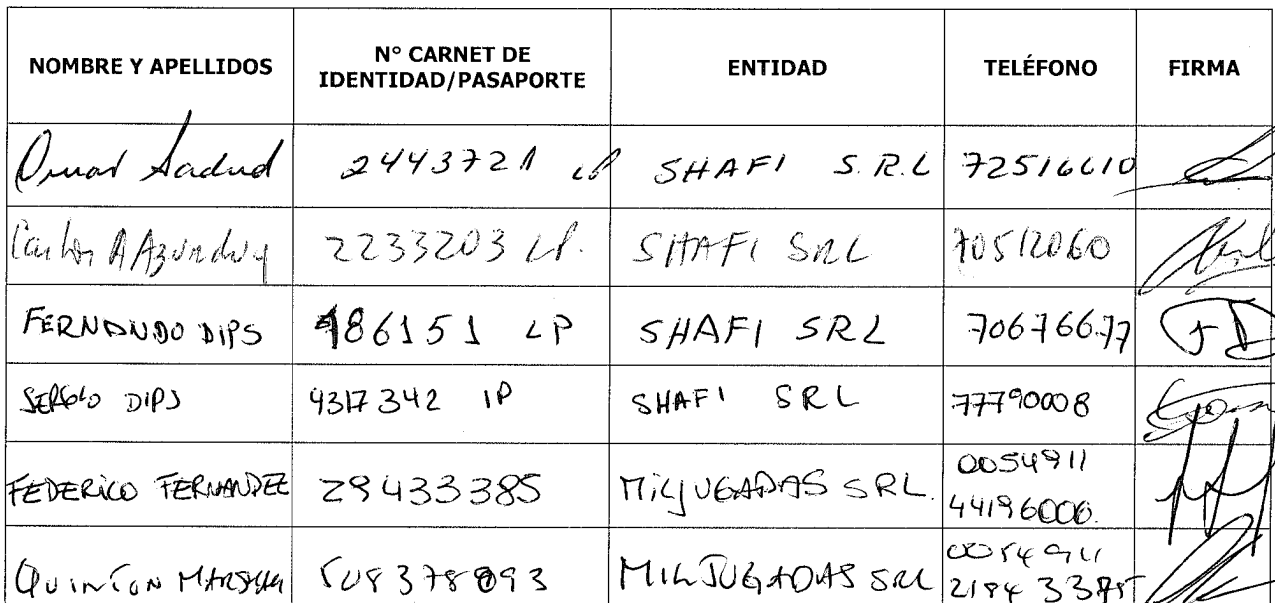 NOMBRE Y APELLIDOS N° CARNET DE IDENTIDAD/PASAPORTE ENTIDAD TELÉFONO FIRMA
Omar Sadud 2443721 LP SHAFI S.R.L 72516610
Carlos A Azurduy 2233203 LP. SHAFI SRL 70512060
FERNANDO DIPS 486151 LP SHAFI SRL 70676677
SERGIO DIPS 4317342 LP SHAFI SRL 77790008
FEDERICO FERNANDEZ 29433385 MILJUGADAS SRL. 0054911
44196000.
QUINTON MILJUGADAS SRL 0054911